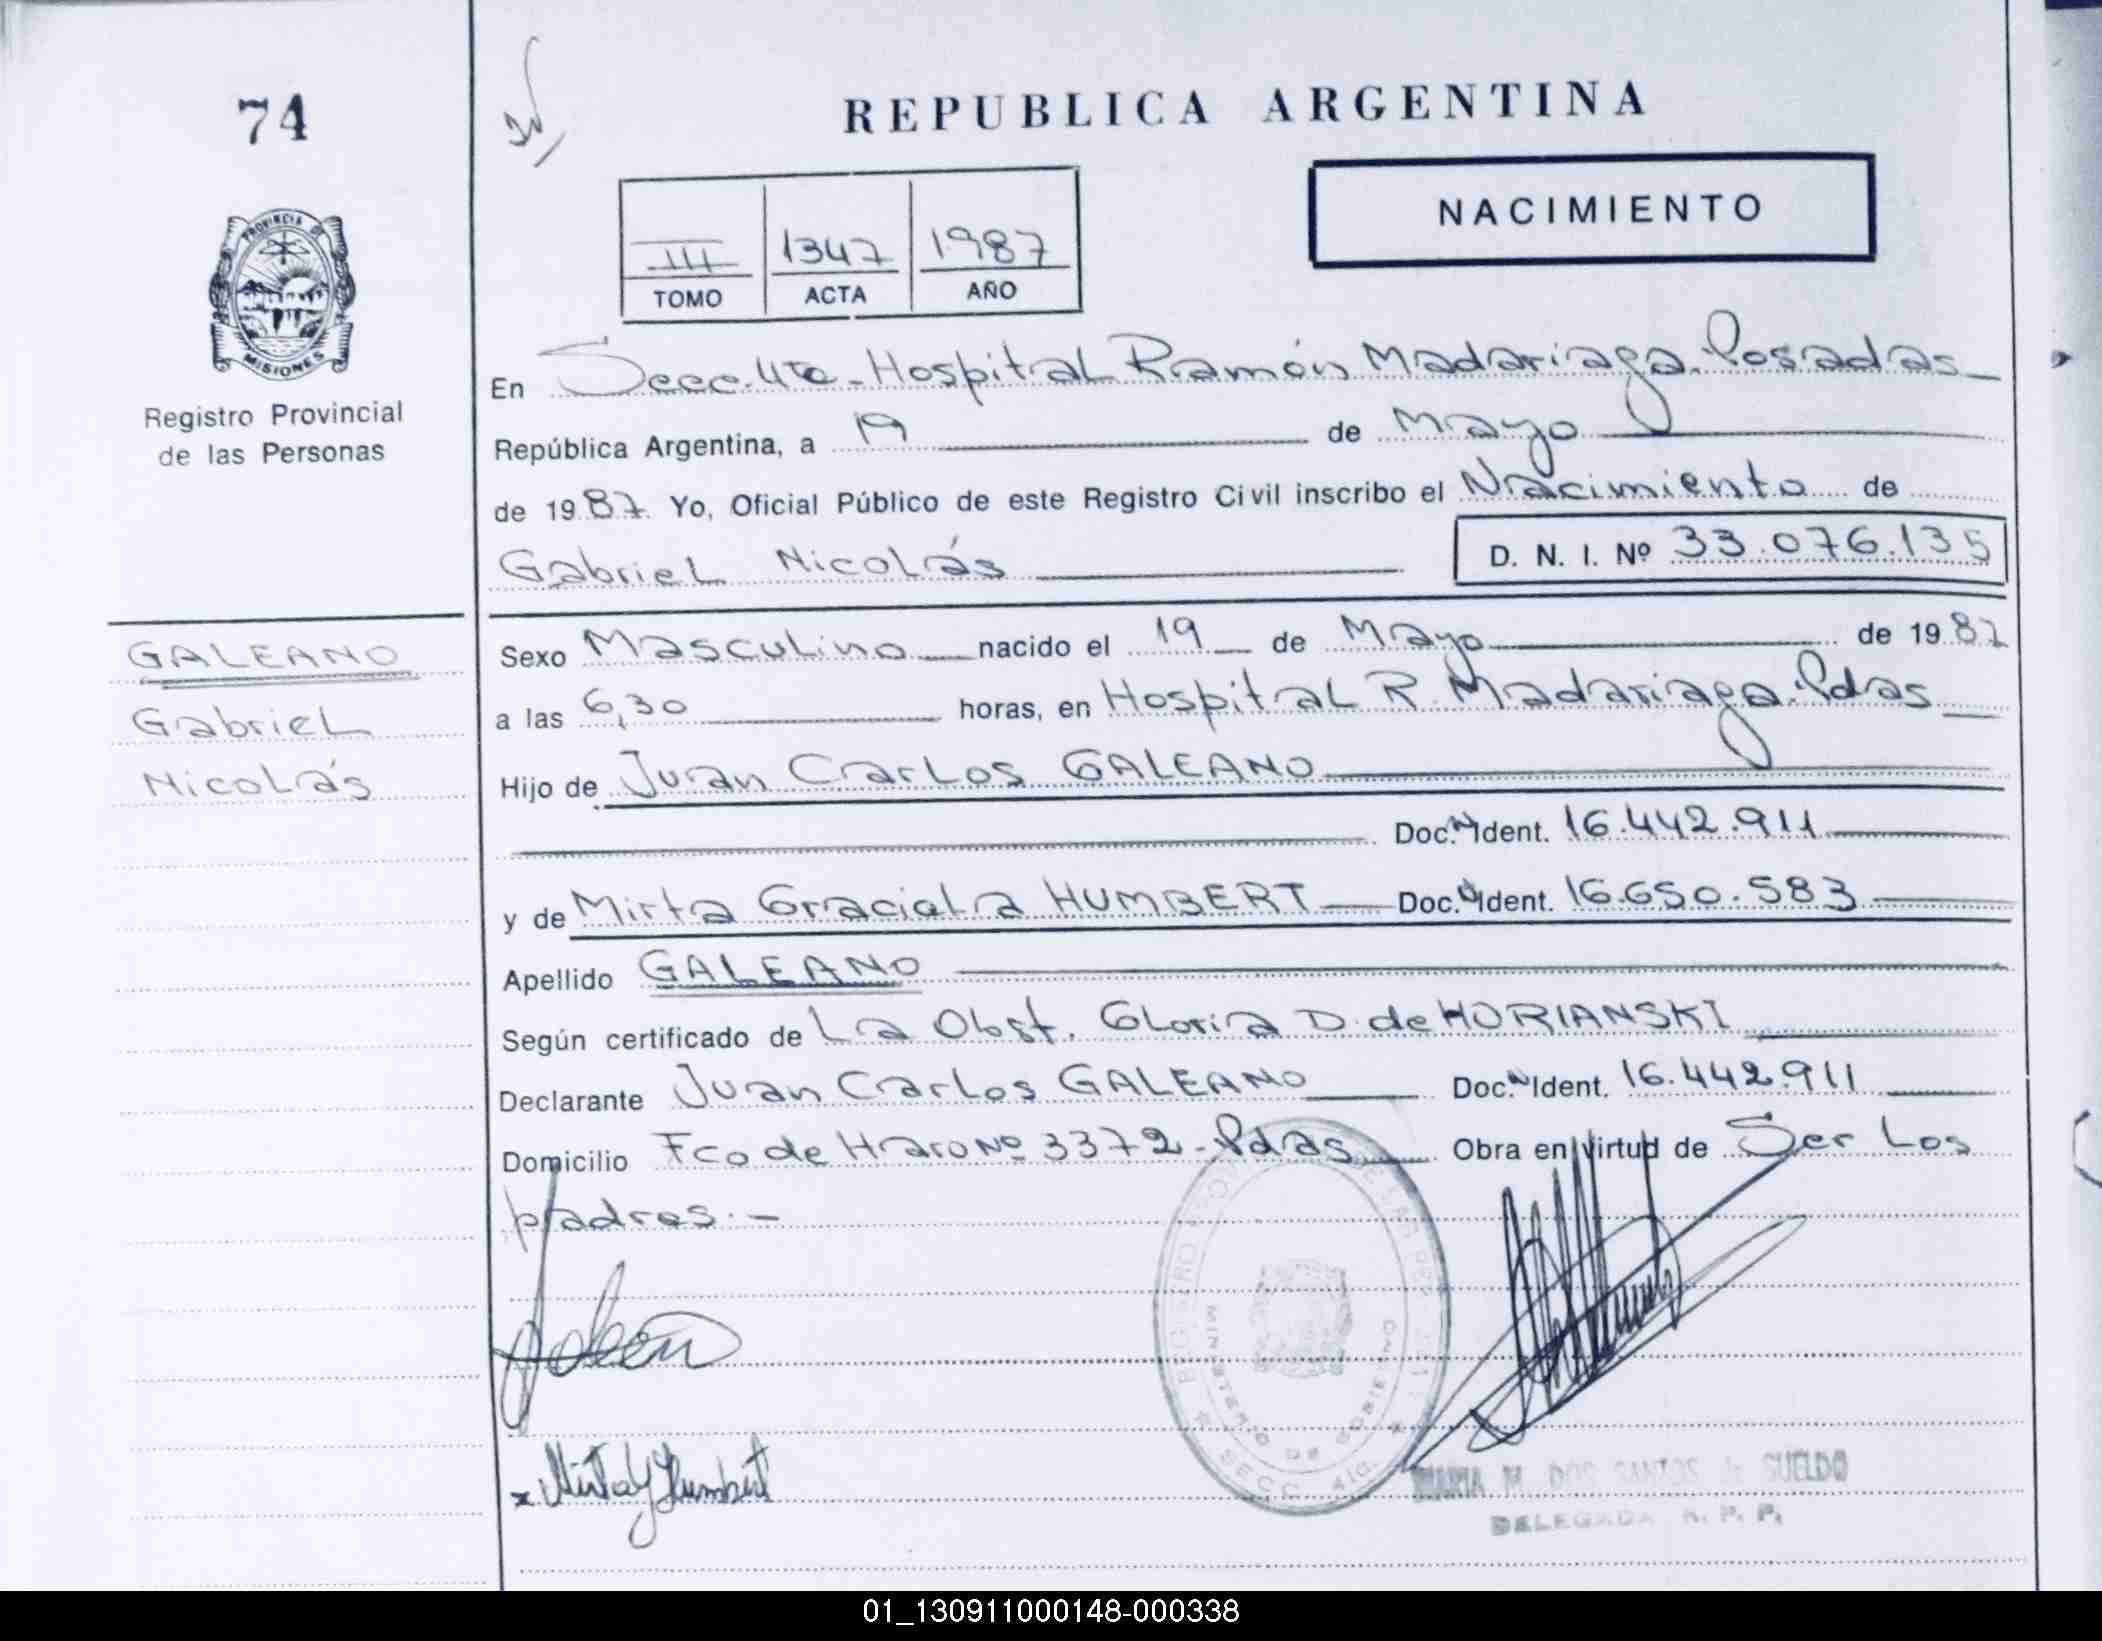 74
REPUBLICA ARGENTINA
NACIMIENTO
III 1347 1987
TOMO ACTA AÑO
PROVINCIA DE
MISIONES
Registro Provincial
de las Personas
En Secc. 4ta - Hospital Ramón Madariaga. Posadas
República Argentina, a 19 de Mayo
de 1987. Yo, Oficial Público de este Registro Civil inscribo el Nacimiento de
Gabriel Nicolás D. N. I. Nº 33.076.135
GALEANO
Gabriel
Nicolás
Sexo Masculino nacido el 19 de Mayo de 1987
a las 6,30 horas, en Hospital R. Madariaga. Pdas
Hijo de Juan Carlos GALEANO
Doc. N Ident. 16.442.911
y de Mirta Graciela HUMBERT Doc. N Ident. 16.650.583
Apellido GALEANO
Según certificado de La Obst. Gloria D. de HORIANSKI
Declarante Juan Carlos GALEANO Doc. N Ident. 16.442.911
Domicilio Fco de Haro Nº 3372 - Pdas Obra en virtud de Ser Los
padres. -
REGISTRO DE LAS
MINISTERIO DE GOBIERNO
SECC. 4ta.
x Mirta G Humbert
MARIA M. DOS SANTOS de SUELDO
DELEGADA R. P. P.
01_130911000148-000338